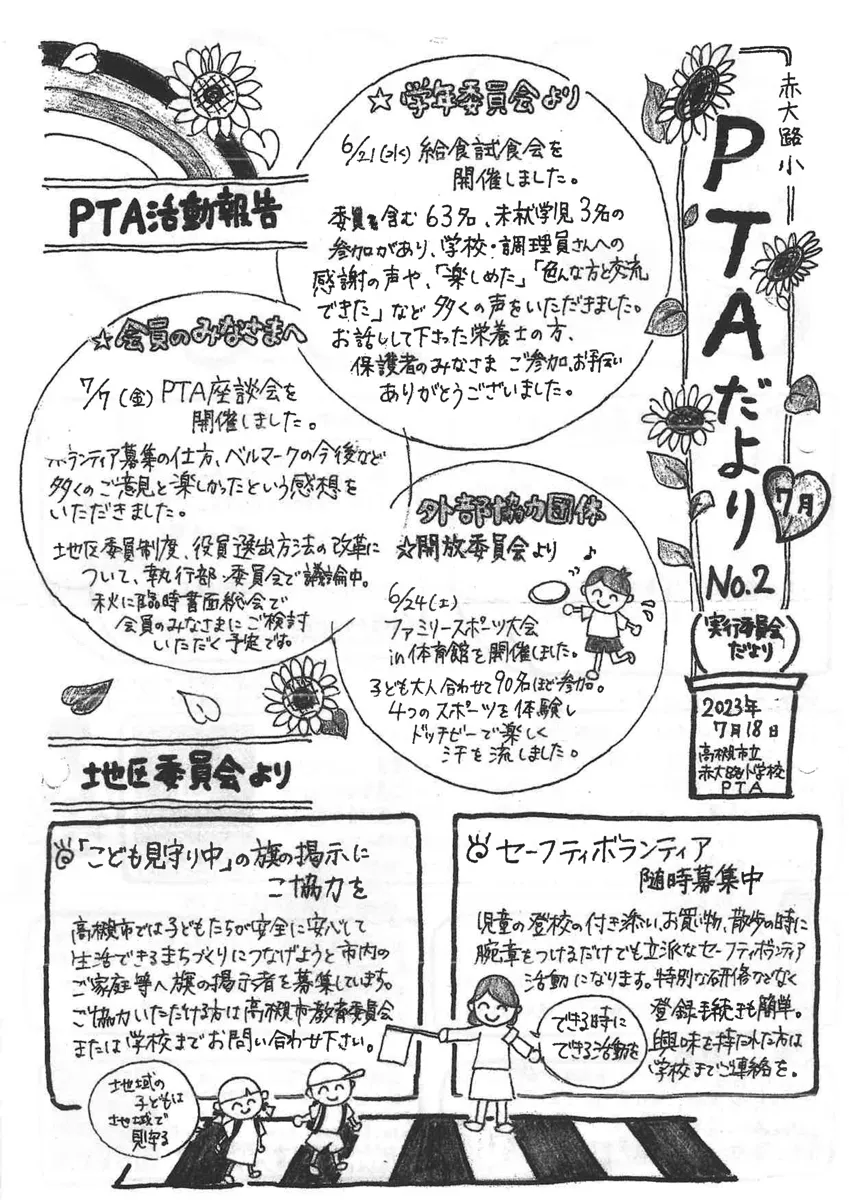 赤大路小
PTAだより
7月
No.2
(実行委員会
だより)
2023年
7月18日
高槻市立
赤大路小学校
PTA
PTA活動報告
☆学年委員会より
6/21(水)給食試食会を
開催しました。
委員を含む63名、未就学児3名の
参加があり、学校・調理員さんへの
感謝の声や、「楽しめた」「色んな方と交流
できた」など多くの声をいただきました。
お話しして下さった栄養士の方、
保護者のみなさま ご参加、お手伝い
ありがとうございました。
☆会員のみなさまへ
7/7(金)PTA座談会を
開催しました。
ボランティア募集の仕方、ベルマークの今後など
多くのご意見と楽しかったという感想を
いただきました。
地区委員制度、役員選出方法の改革に
ついて、執行部・委員会で議論中。
秋に臨時書面総会で
会員のみなさまにご検討
いただく予定です。
外部協力団体
☆開放委員会より
6/24(土)
ファミリースポーツ大会
in体育館を開催しました。
子ども大人合わせて90名ほど参加。
4つのスポーツを体験し
ドッチビーで楽しく
汗を流しました。
地区委員会より
「こども見守り中」の旗の掲示に
ご協力を
高槻市では子どもたちが安全に安心して
生活できるまちづくりにつなげようと市内の
ご家庭等へ旗の掲示者を募集しています。
ご協力いただける方は高槻市教育委員会
または学校までお問い合わせ下さい。
地域の
子どもは
地域で
見守る
セーフティボランティア
随時募集中
児童の登校の付き添い、お買い物、散歩の時に
腕章をつけるだけでも立派なセーフティボランティア
活動になります。特別な研修などなく
登録手続きも簡単。
興味を持たれた方は
学校までご連絡を。
できる時に
できる活動を